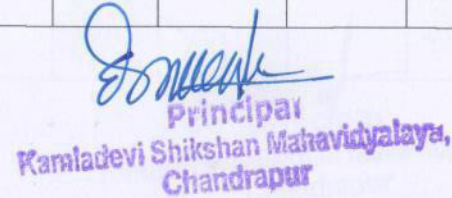 Principal
Kamladevi Shikshan Mahavidyalaya,
Chandrapur